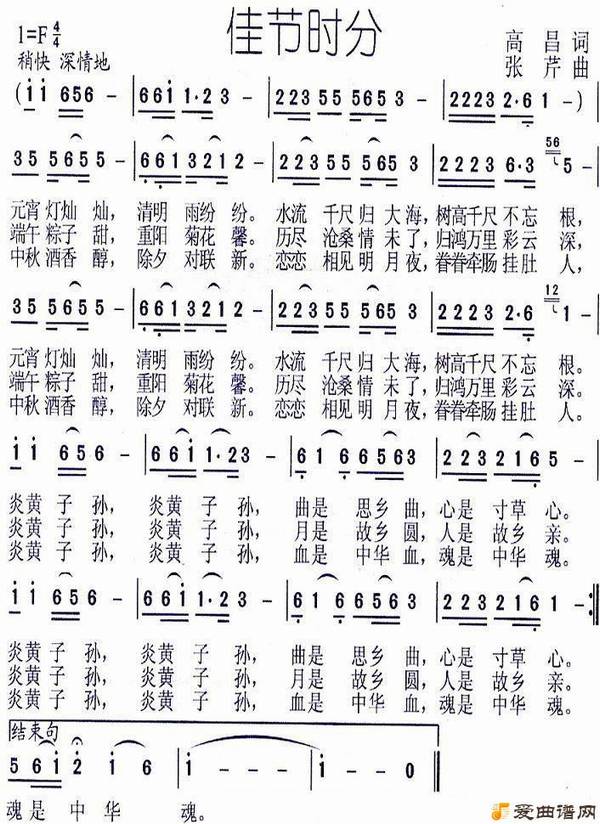 佳节时分
1=F 4/4
高昌 词
稍快 深情地
张芹 曲
( i i 6 5 6 - | 6 6 i i · 2 3 | 2 2 3 5 5 5 6 5 3 | 2 2 2 3 2 · 6 1 - )
3 5 5 6 5 5 - | 6 6 1 3 2 1 2 - | 2 2 3 5 5 5 6 5 3 | 2 2 2 3 6 · 3 56 5 -
元宵 灯灿 灿, 清明 雨纷 纷。 水流 千尺 归 大 海, 树高千尺 不忘 根,
端午 粽子 甜, 重阳 菊花 馨。 历尽 沧桑 情 未 了, 归鸿万里 彩云 深,
中秋 酒香 醇, 除夕 对联 新。 恋恋 相见 明 月 夜, 眷眷牵肠 挂肚 人,
3 5 5 6 5 5 - | 6 6 1 3 2 1 2 - | 2 2 3 5 5 5 6 5 3 | 2 2 2 3 2 · 6 12 1 -
元宵 灯灿 灿, 清明 雨纷 纷。 水流 千尺 归 大 海, 树高千尺 不忘 根。
端午 粽子 甜, 重阳 菊花 馨。 历尽 沧桑 情 未 了, 归鸿万里 彩云 深。
中秋 酒香 醇, 除夕 对联 新。 恋恋 相见 明 月 夜, 眷眷牵肠 挂肚 人。
i i 6 5 6 - | 6 6 i i · 2 3 - | 6 1 6 6 5 6 3 | 2 2 3 2 1 6 5 -
炎黄 子 孙, 炎黄 子 孙, 曲是 思乡 曲, 心是 寸草 心。
炎黄 子 孙, 炎黄 子 孙, 月是 故乡 圆, 人是 故乡 亲。
炎黄 子 孙, 炎黄 子 孙, 血是 中华 血, 魂是 中华 魂。
i i 6 5 6 - | 6 6 i i · 2 3 - | 6 1 6 6 5 6 3 | 2 2 3 2 1 6 1 - :|
炎黄 子 孙, 炎黄 子 孙, 曲是 思乡 曲, 心是 寸草 心。
炎黄 子 孙, 炎黄 子 孙, 月是 故乡 圆, 人是 故乡 亲。
炎黄 子 孙, 炎黄 子 孙, 血是 中华 血, 魂是 中华 魂。
结束句
5 6 i 2 i 6 | i - - - | i - 0 0 ‖
魂是 中 华 魂。
爱曲谱网